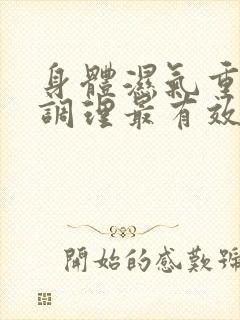 身體濕氣重
調理最有效
開始的感歎號